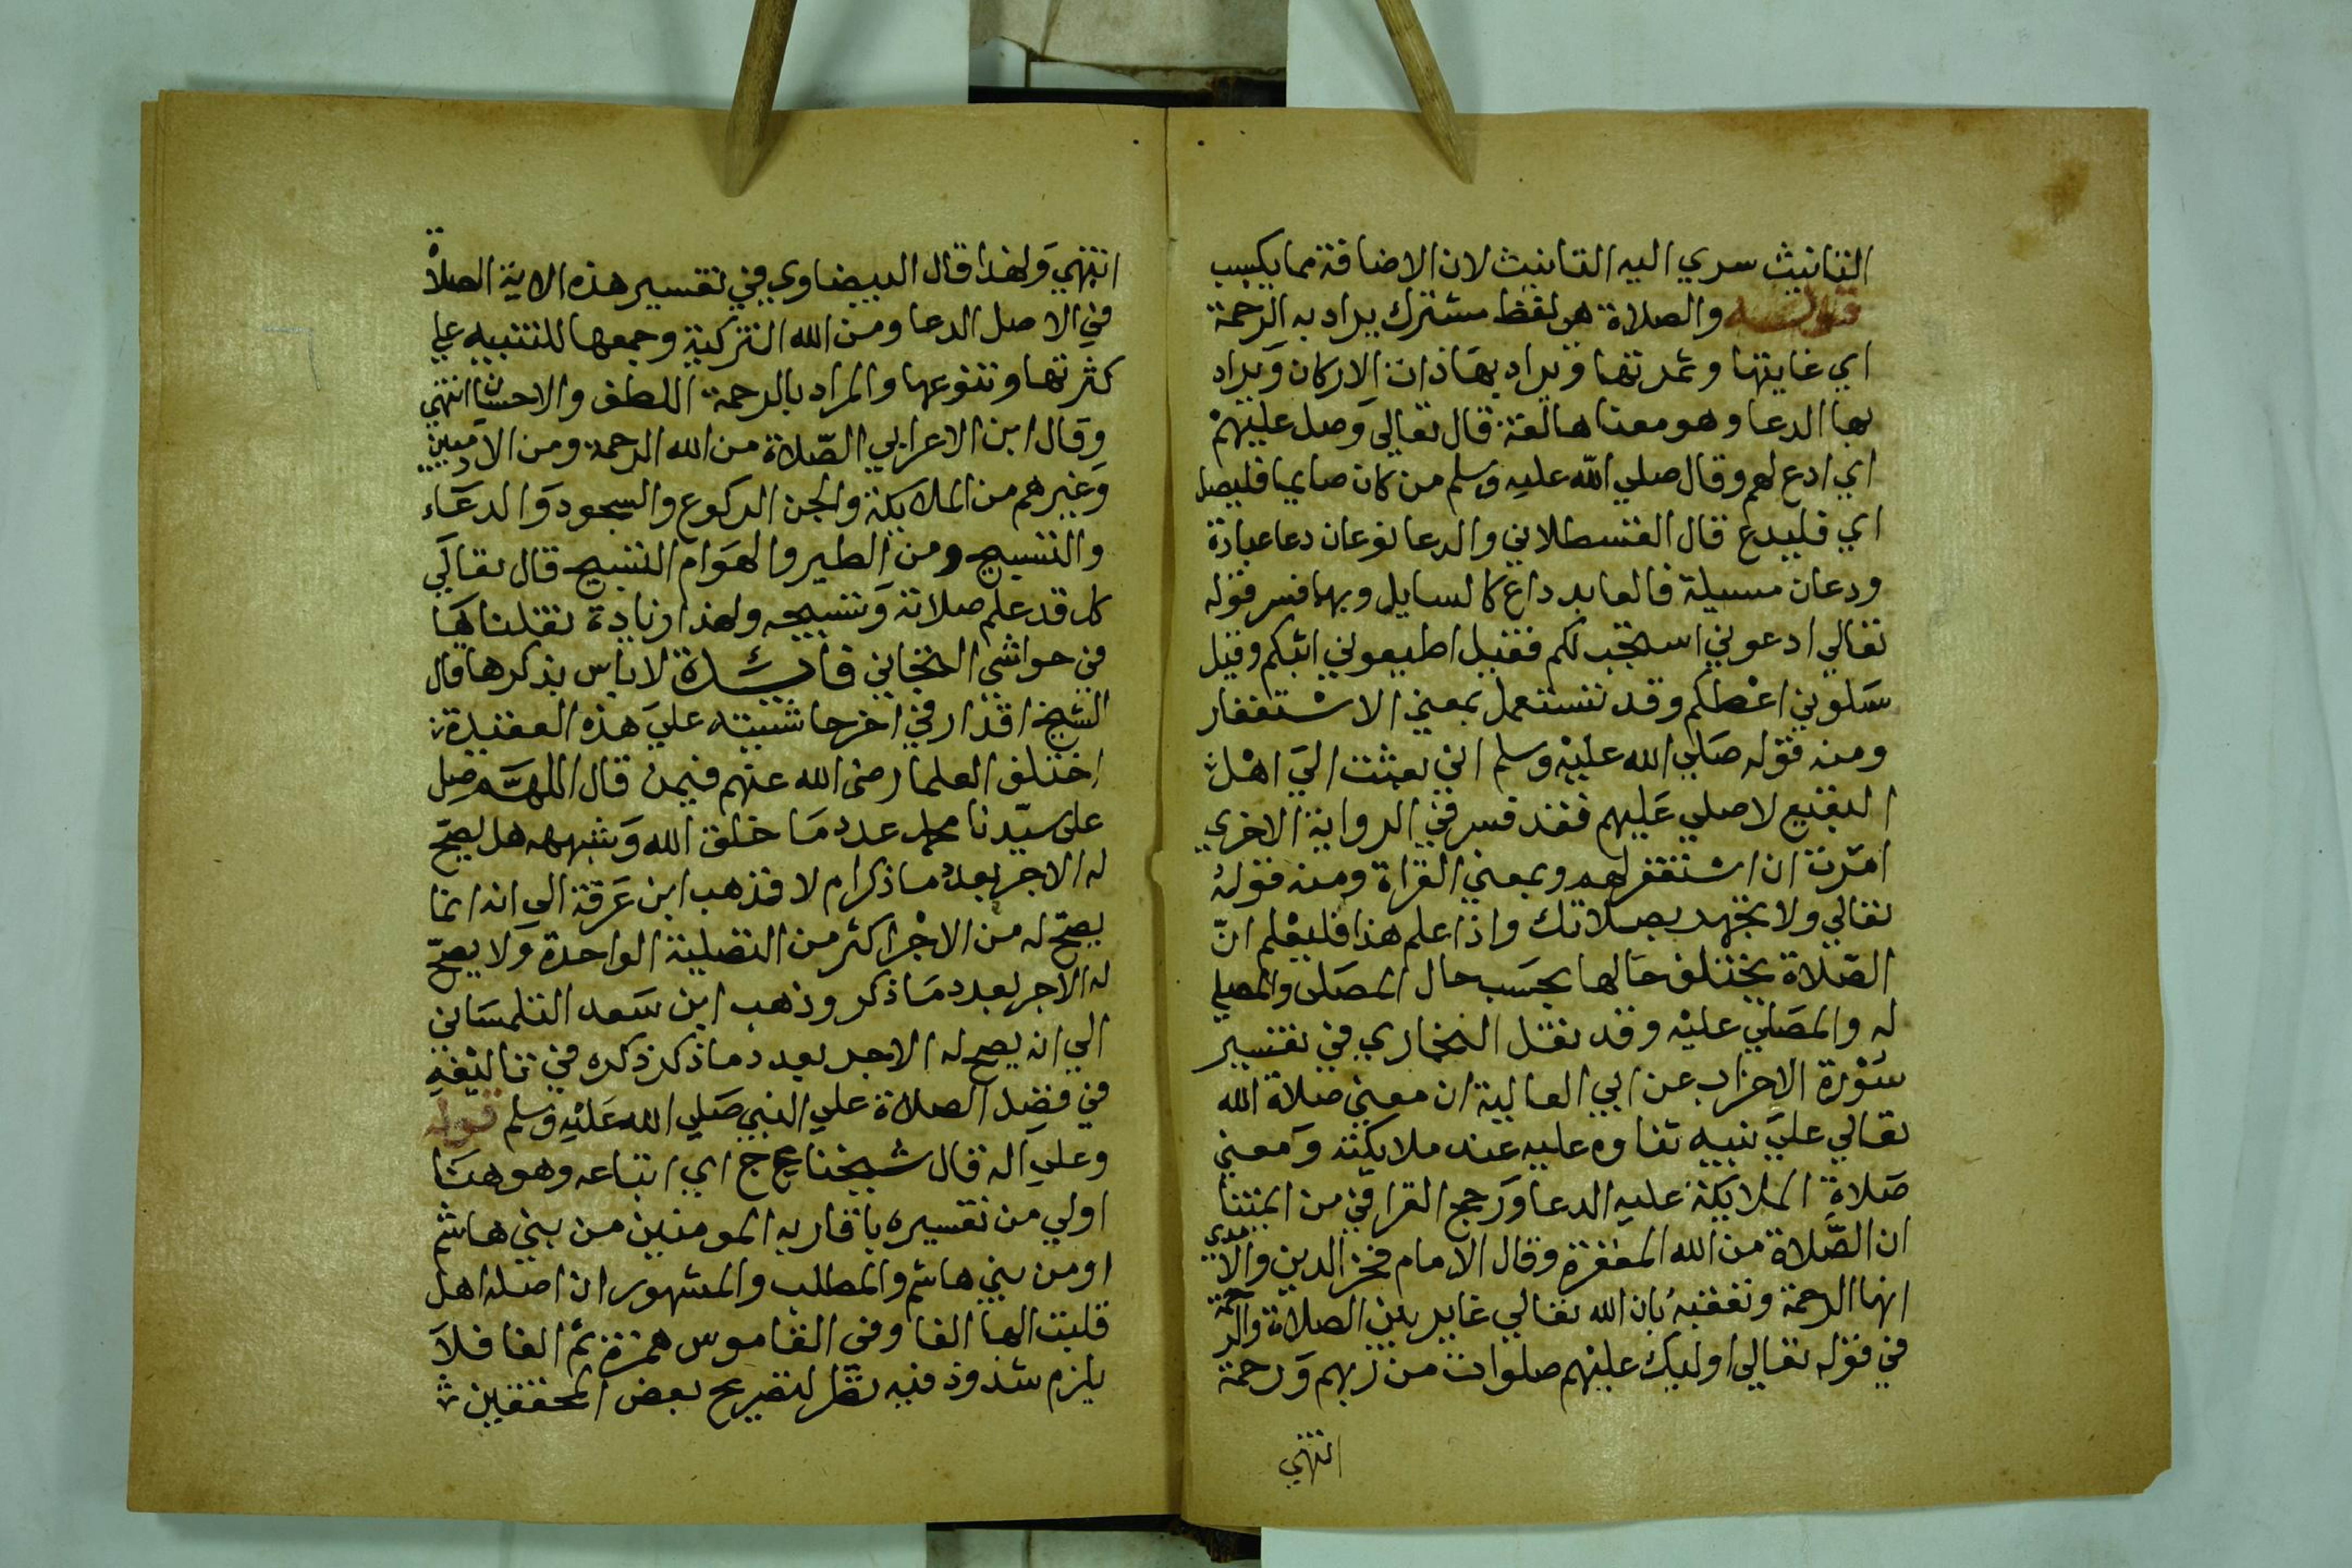 التانيث سري اليه التانيث لان الاضافة مما يكسب
قوله والصلاة هو لفظ مشترك يراد به الرحمة
اي غايتها وثمرتها ويراد بها ذات الاركان ويراد
بها الدعا وهو معناها لغة قال تعالي وصل عليهم
اي ادع لهم وقال صلي الله عليه وسلم من كان صايما فليصل
اي فليدع قال القسطلاني والدعا نوعان دعا عبادة
ودعان مسيلة فالعابد داع كالسايل وبهما فسر قوله
تعالي ادعوني استجب لكم فقيل اطيعوني اثبكم وقيل
سلوني اعطكم وقد تستعمل بمعني الاستغفار
ومنه قوله صلي الله عليه وسلم اني بعثت الي اهل
البقيع لاصلي عليهم فقد فسر في الرواية الاخري
امرت ان استغفر لهم وبمعني القراة ومنه قوله
تعالي ولا تجهر بصلاتك واذا علم هذا فليعلم ان
الصلاة يختلف حالها بحسب حال المصلى والمصلي
له والمصلي عليه وقد نقل البخاري في تفسير
سورة الاحزاب عن ابي العالية ان معني صلاة الله
تعالي علي نبيه ثناوه عليه عند ملايكته ومعني
صلاة الملايكة عليه الدعا ورجح القرافي من ايمتنا
ان الصلاة من الله المغفرة وقال الامام فخر الدين والامدي
انها الرحمة وتعقبه بان الله تعالي غاير بين الصلاة والرحمة
في قوله تعالي اوليك عليهم صلوات من ربهم ورحمة
انتهي
انتهي ولهذا قال البيضاوي في تفسير هذه الاية الصلاة
في الاصل الدعا ومن الله التزكية وجمعها للتنبيه علي
كثرتها وتنوعها والمراد بالرحمة اللطف والاحسان انتهي
وقال ابن الاعرابي الصلاة من الله الرحمة ومن الادميين
وغيرهم من الملايكة والجن الركوع والسجود والدعاء
والتسبيح ومن الطير والهوام التسبيح قال تعالي
كل قد علم صلاته وتسبيحه ولهذا زيادة نقلناها
في حواشي فائدة لا باس بذكرها قال
الشيخ اقدار في اخر حاشيته علي هذه العقيدة
اختلف العلما رضى الله عنهم فيمن قال اللهم صل
على سيدنا محمد عدد ما خلق الله وشبهه هل يصح
له الاجر بعدد ما ذكر ام لا فذهب ابن عرفة الي انه انما
يصح له من الاجر اكثر من التصلية الواحدة ولا يصح
له الاجر بعدد ما ذكر وذهب ابن سعد التلمساني
الي انه يصح له الاجر بعدد ما ذكر ذكره في تاليفه
في فضل الصلاة علي النبي صلي الله عليه وسلم قوله
وعلي اله قال شيخنا عج اي اتباعه وهو هنا
اولي من تفسيره باقاربه المومنين من بني هاشم
او من بني هاشم والمطلب والمشهور ان اصله اهل
قلبت الها الفا وفى القاموس همزة ثم الفا فلا
يلزم شذوذ فيه نظر لتصريح بعض المحققين